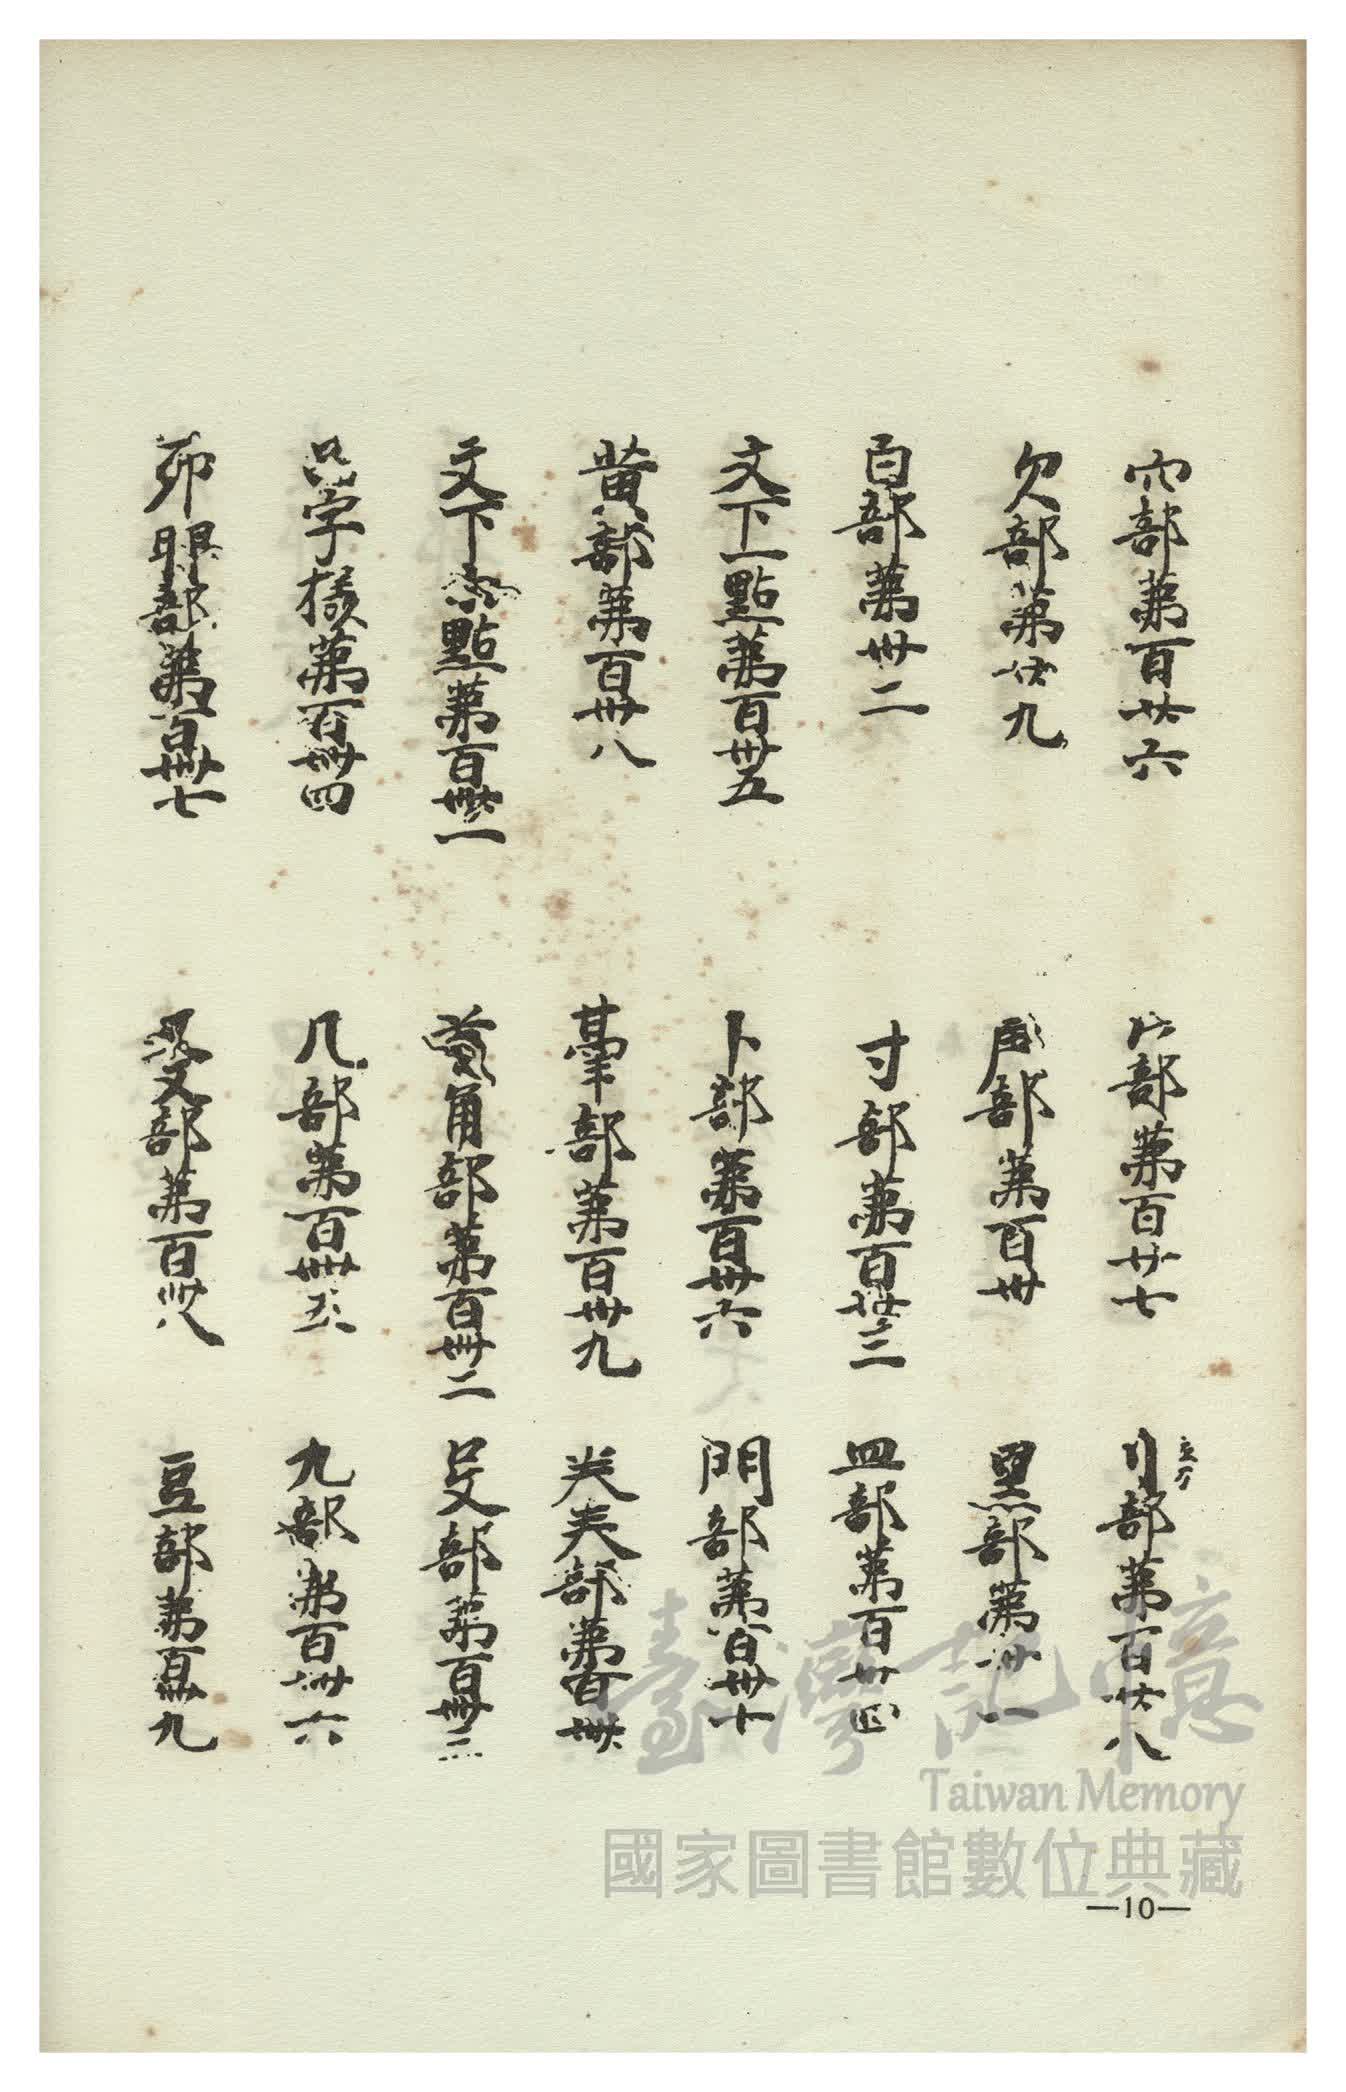 穴部第百廿六
片部第百廿七
刂部第百廿八
立刀
欠部第廿九
尸部第百卅
黑部第卅一
百部第卅二
寸部第百卅三
皿部第百卅四
文下一點第百卅五
卜部第百卅六
門部第百卅七
黃部第百卅八
部第百卅九
部第百卌
文下點第百卌一
角部第百卌二
殳部第百卌三
品字樣第百卌四
几部第百卌五
九部第百卌六
卯部第百卌七
部第百卌八
豆部第百卌九
臺灣記憶
Taiwan Memory
國家圖書館數位典藏
—10—